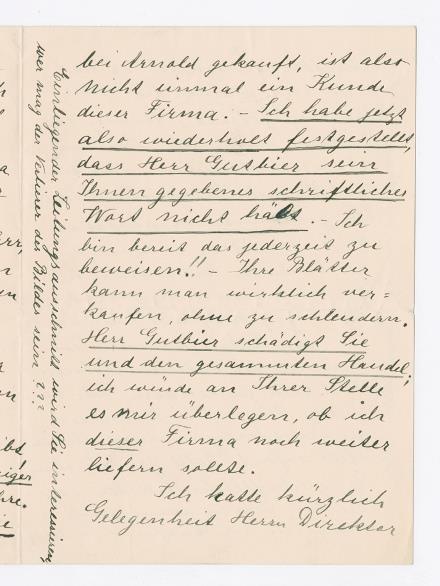 bei Arnold gekauft, ist also
nicht einmal ein Kunde
dieser Firma. - Ich habe jetzt
also wiederholt festgestellt,
dass Herr Gutbier sein
Ihnen gegebenes schriftliches
Wort nicht hält. - Ich
bin bereit das jederzeit zu
beweisen!! - Ihre Blätter
kann man wirklich ver=
kaufen, ohne zu schleudern.
Herr Gutbier schädigt Sie
und den gesammten Handel;
ich würde an Ihrer Stelle
es mir überlegen, ob ich
dieser Firma noch weiter
liefern sollte.
Ich hatte kürzlich
Gelegenheit Herrn Direktor
Einliegender Zeitungsausschnitt wird Sie interessieren,
wer mag der Kritiker des Bildes sein ???